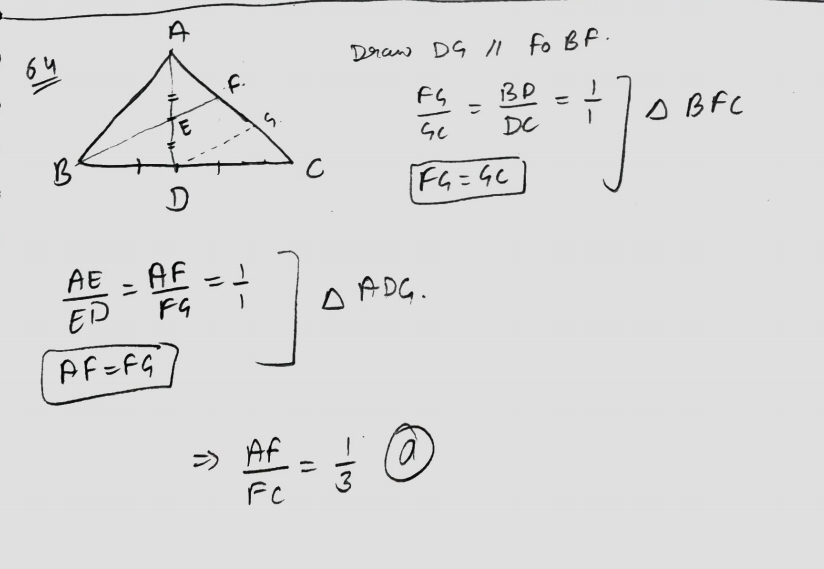 64
A
F.
E
G.
B
D
C
Draw DG // to BF.
FG/GC = BD/DC = 1/1 ] Δ BFC
FG = GC
AE/ED = AF/FG = 1/1 ] Δ ADG.
AF = FG
⇒ AF/FC = 1/3 (a)